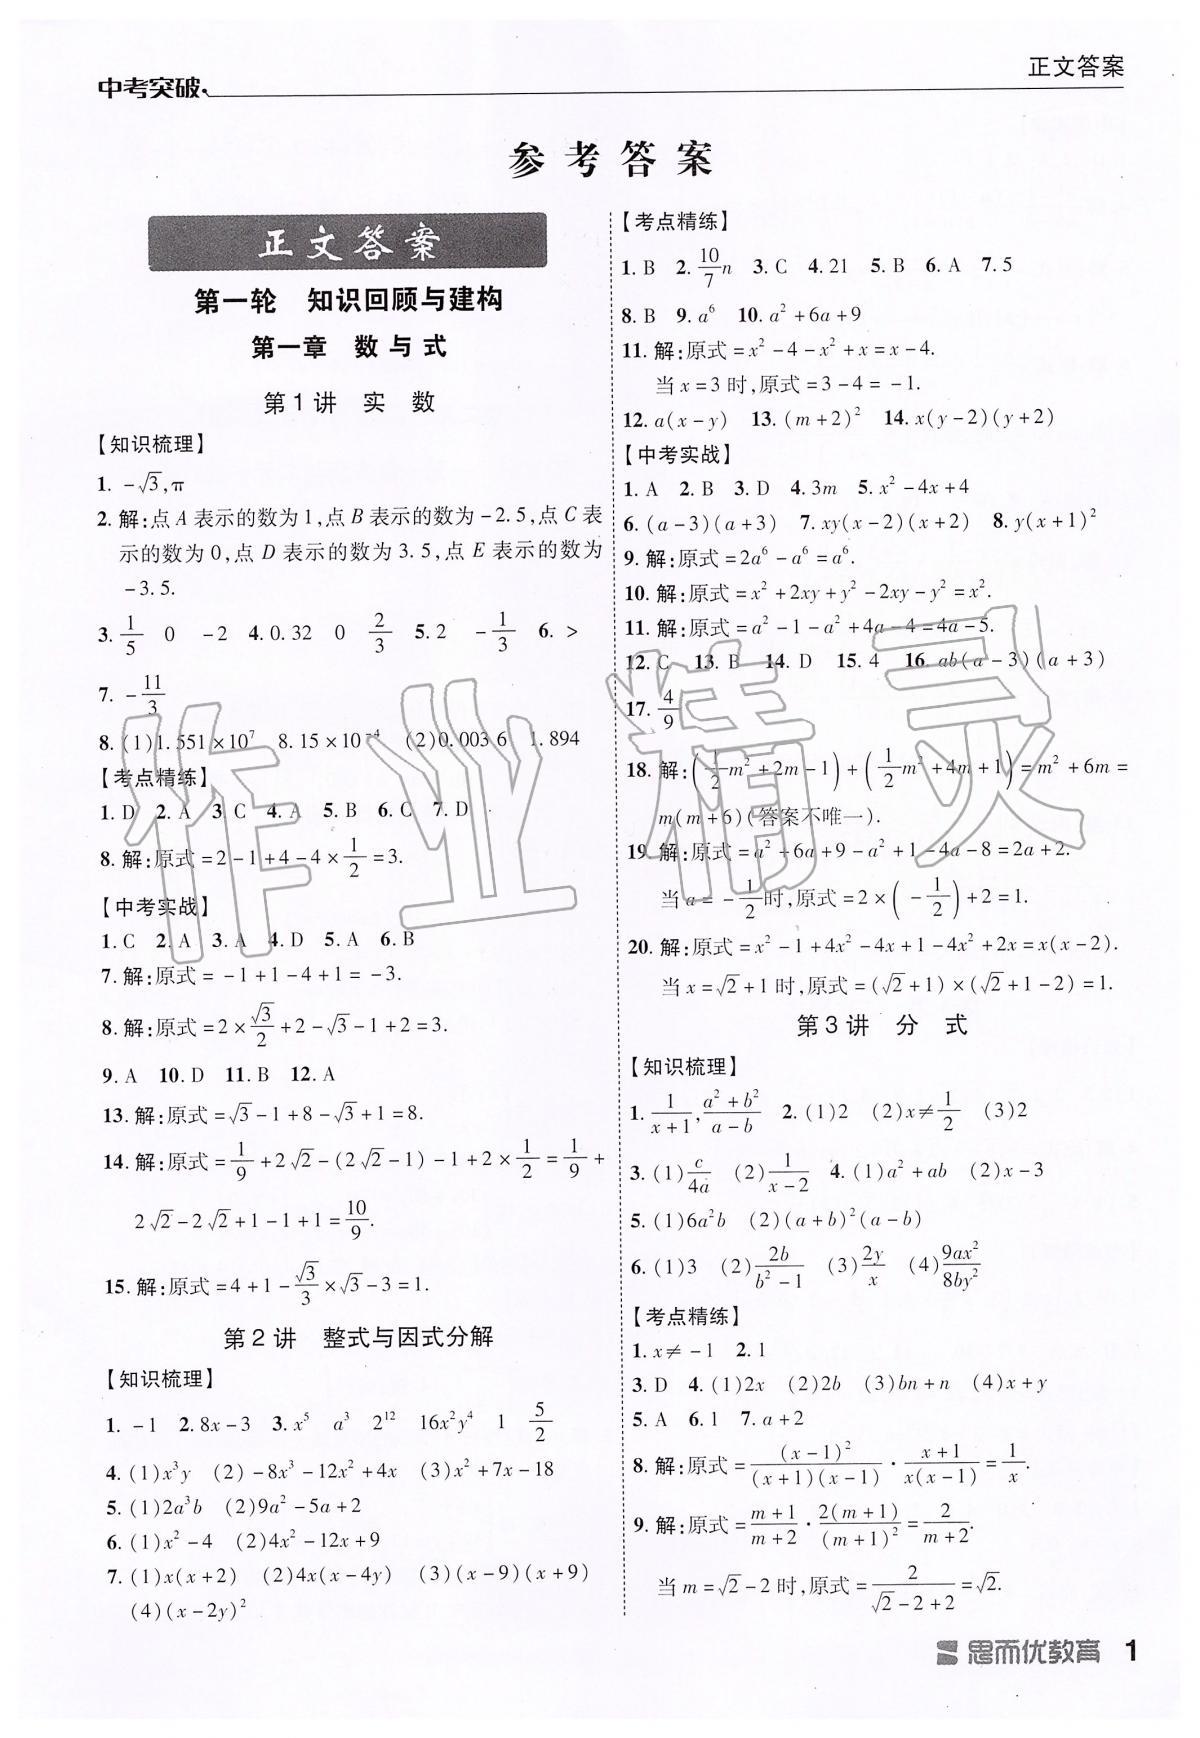 中考突破
正文答案
参考答案
正文答案
第一轮 知识回顾与建构
第一章 数与式
第1讲 实 数
【知识梳理】
1. -√3,π
2. 解:点 A 表示的数为 1,点 B 表示的数为 -2.5,点 C 表
示的数为 0,点 D 表示的数为 3.5,点 E 表示的数为
-3.5.
3. 1/5 0 -2 4. 0.32 0 2/3 5. 2 -1/3 6. >
7. -11/3
8. (1)1.551×10⁷ 8.15×10⁻⁴ (2)0.003 6 1.894
【考点精练】
1. D 2. A 3. C 4. A 5. B 6. C 7. D
8. 解:原式=2-1+4-4×1/2=3.
【中考实战】
1. C 2. A 3. A 4. D 5. A 6. B
7. 解:原式=-1+1-4+1=-3.
8. 解:原式=2×√3/2+2-√3-1+2=3.
9. A 10. D 11. B 12. A
13. 解:原式=√3-1+8-√3+1=8.
14. 解:原式=1/9+2√2-(2√2-1)-1+2×1/2=1/9+
2√2-2√2+1-1+1=10/9.
15. 解:原式=4+1-√3/3×√3-3=1.
第2讲 整式与因式分解
【知识梳理】
1. -1 2. 8x-3 3. x⁵ a³ 2¹² 16x²y⁴ 1 5/2
4. (1)x³y (2)-8x³-12x²+4x (3)x²+7x-18
5. (1)2a³b (2)9a²-5a+2
6. (1)x²-4 (2)4x²-12x+9
7. (1)x(x+2) (2)4x(x-4y) (3)(x-9)(x+9)
(4)(x-2y)²
【考点精练】
1. B 2. 10/7 n 3. C 4. 21 5. B 6. A 7. 5
8. B 9. a⁶ 10. a²+6a+9
11. 解:原式=x²-4-x²+x=x-4.
当 x=3 时,原式=3-4=-1.
12. a(x-y) 13. (m+2)² 14. x(y-2)(y+2)
【中考实战】
1. A 2. B 3. D 4. 3m 5. x²-4x+4
6. (a-3)(a+3) 7. xy(x-2)(x+2) 8. y(x+1)²
9. 解:原式=2a⁶-a⁶=a⁶.
10. 解:原式=x²+2xy+y²-2xy-y²=x².
11. 解:原式=a²-1-a²+4a-4=4a-5.
12. C 13. B 14. D 15. 4 16. ab(a-3)(a+3)
17. 4/9
18. 解:(1/2 m²+2m-1)+(1/2 m²+4m+1)=m²+6m=
m(m+6)(答案不唯一).
19. 解:原式=a²+6a+9-a²+1-4a-8=2a+2.
当 a=-1/2 时,原式=2×(-1/2)+2=1.
20. 解:原式=x²-1+4x²-4x+1-4x²+2x=x(x-2).
当 x=√2+1 时,原式=(√2+1)×(√2+1-2)=1.
第3讲 分 式
【知识梳理】
1. 1/(x+1), (a²+b²)/(a-b) 2. (1)2 (2)x≠1/2 (3)2
3. (1)c/4a (2)1/(x-2) 4. (1)a²+ab (2)x-3
5. (1)6a²b (2)(a+b)²(a-b)
6. (1)3 (2)2b/(b²-1) (3)2y/x (4)9ax²/8by²
【考点精练】
1. x≠-1 2. 1
3. D 4. (1)2x (2)2b (3)bn+n (4)x+y
5. A 6. 1 7. a+2
8. 解:原式=(x-1)²/(x+1)(x-1)·(x+1)/x(x-1)=1/x.
9. 解:原式=(m+1)/(m+2)·2(m+1)/(m+1)²=2/(m+2).
当 m=√2-2 时,原式=2/(√2-2+2)=√2.
思而优教育 1
作业精灵